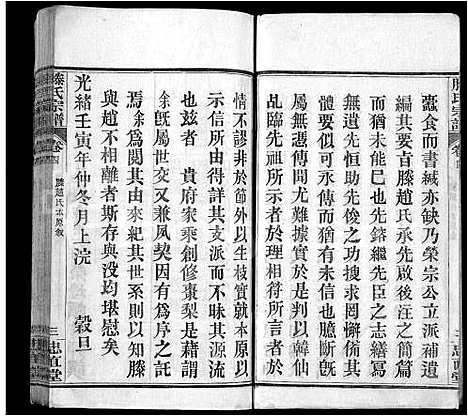 滕氏宗譜
卷四
蠹食而書緘亦缺乃榮宗公立派補遺
編其要言滕趙氏承先啟後汪之簡篇
猶有未能已也先鎔繼先臣之志繕寫
無遺先恒助先長偕同姓各房公辦其
間世有傳人可久可大信而有也臆斷偶
屬無憑傳聞尤難據實於是與劉仙筆
乩示先祖所示者於理相符所言
情不謬非於節外生枝實就本原以
示信所由得詳其支派而不昧其源流
者茲　貴府家乘創修棗梨是藉謂
余旣屬世交又兼夙契因有為序之託
焉余爲閱其由來紀其世系則以知滕
與趙不相離者斯存與没均堪慰矣
光緒壬寅年仲冬月上浣　　穀旦
滕氏宗譜
卷四
滕趙氏本原敘
三
忠直堂